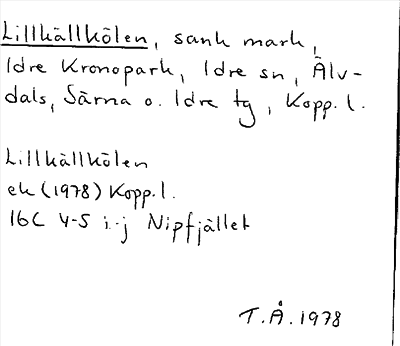 Lillkällkölen, sank mark,
Idre Kronopark, Idre sn, Älv-
dals, Särna o. Idre tg, Kopp. l.
Lillkällkölen
ek (1978) Kopp. l.
16C 4-5 i-j Nipfjället
T.Å. 1978